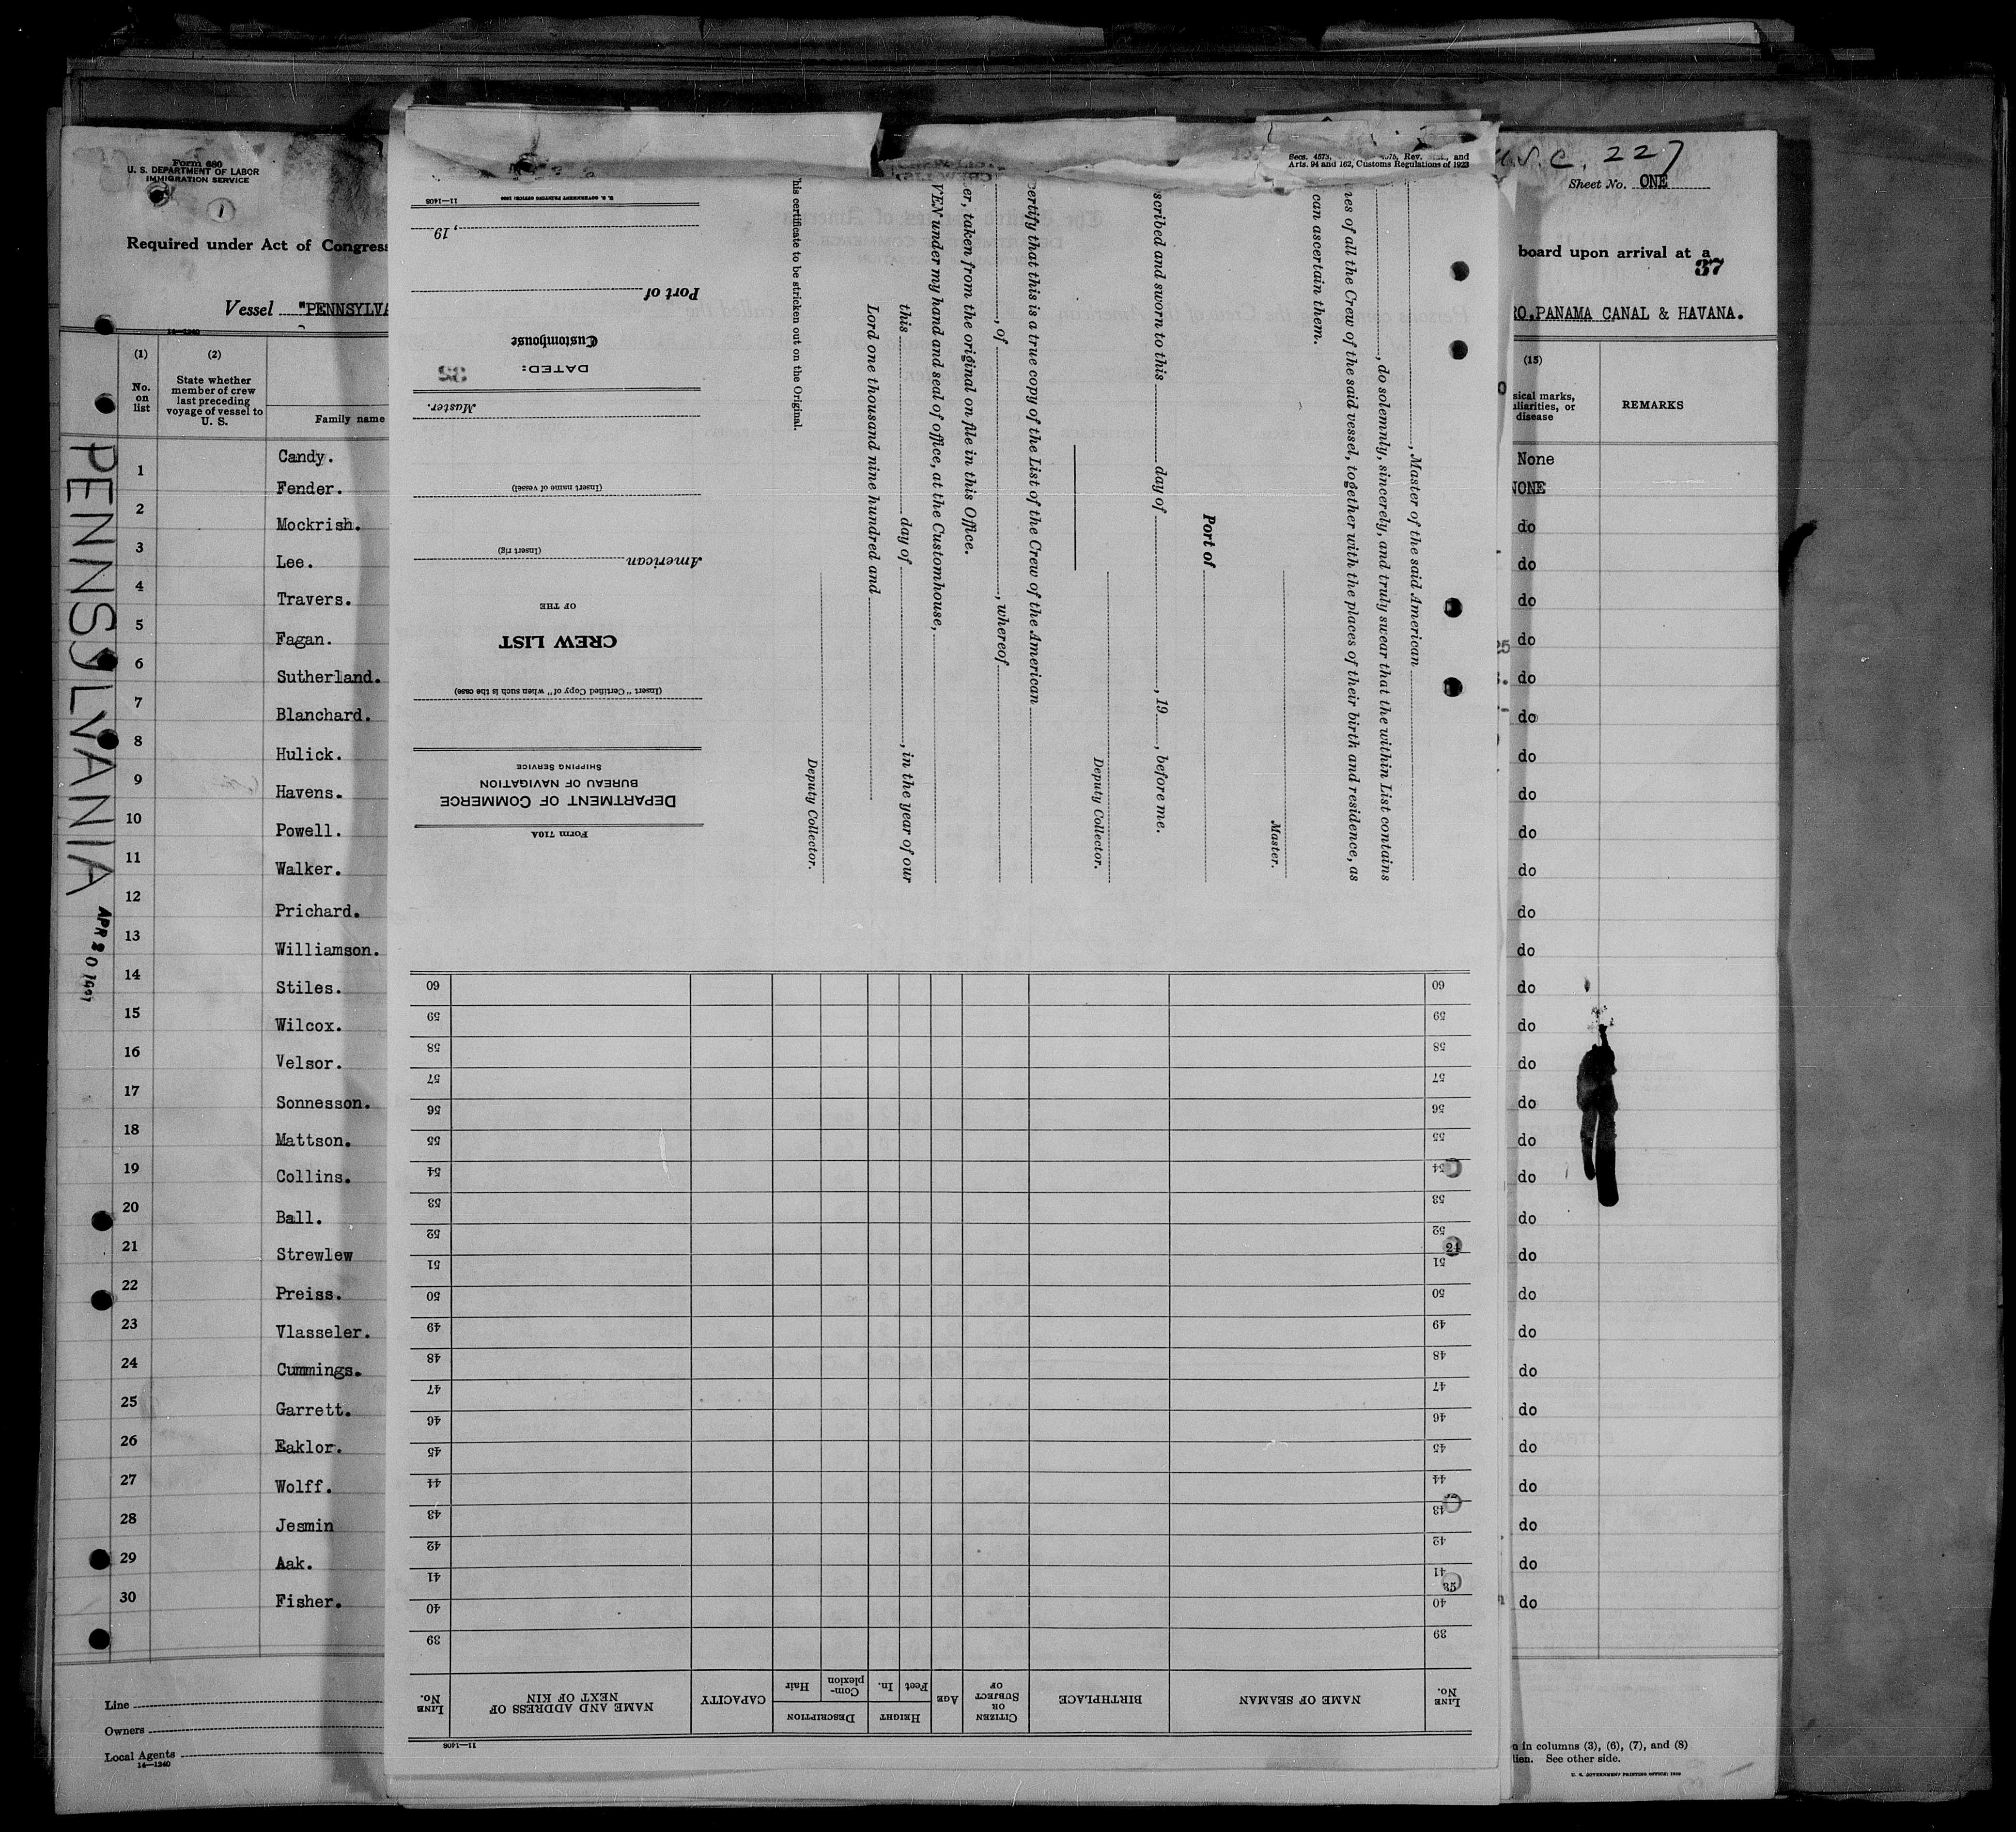 Form 680
U. S. DEPARTMENT OF LABOR
IMMIGRATION SERVICE
1
Required under Act of Congress
Vessel "PENNSYLVA
14—1240
(1)
No. on list
(2)
State whether member of crew last preceding voyage of vessel to U. S.
Family name
PENNSYLVANIA
APR 20
Candy.
1
Fender.
2
Mockrish.
3
Lee.
4
Travers.
5
Fagan.
6
Sutherland.
7
Blanchard.
8
Hulick.
9
Havens.
10
Powell.
11
Walker.
12
Prichard.
13
Williamson.
14
Stiles.
15
Wilcox.
16
Velsor.
17
Sonnesson.
18
Mattson.
19
Collins.
20
Ball.
21
Strewlew
22
Preiss.
23
Vlasseler.
24
Cummings.
25
Garrett.
26
Eaklor.
27
Wolff.
28
Jesmin
29
Aak.
30
Fisher.
Line
Owners
Local Agents
14—1240
Secs. 4573, 4575, Rev. and
Arts. 94 and 162, Customs Regulations of 1923
, Master of the said American
, do solemnly, sincerely, and truly swear that the within List contains
nes of all the Crew of the said vessel, together with the places of their birth and residence, as
can ascertain them.
Master.
Port of
scribed and sworn to this day of , 19 , before me.
Deputy Collector.
ertify that this is a true copy of the List of the Crew of the American
, of , whereof
er, taken from the original on file in this Office.
VEN under my hand and seal of office, at the Customhouse,
this day of , in the year of our
Lord one thousand nine hundred and
Deputy Collector.
his certificate to be stricken out on the Original.
Form 710A
DEPARTMENT OF COMMERCE
BUREAU OF NAVIGATION
SHIPPING SERVICE
(Insert "Certified Copy of" when such is the case)
CREW LIST
OF THE
American
(Insert rig)
(Insert name of vessel)
Master.
DATED:
Customhouse
Port of
, 19
11—1408 U. S. GOVERNMENT PRINTING OFFICE
11—1408
LINE No.
NAME OF SEAMAN
BIRTHPLACE
CITIZEN OR SUBJECT OF
AGE
HEIGHT
Feet
In.
DESCRIPTION
Complexion
Hair
CAPACITY
NAME AND ADDRESS OF NEXT OF KIN
LINE No.
39 39
40 40
41 41
42 42
43 43
44 44
45 45
46 46
47 47
48 48
49 49
50 50
51 51
52 52
53 53
54 54
55 55
56 56
57 57
58 58
59 59
60 60
24
35
227
Sheet No. ONE
board upon arrival at a
37
RO, PANAMA CANAL & HAVANA.
(15)
sical marks,
uliarities, or
disease
REMARKS
None
NONE
do
do
do
do
do
do
do
do
do
do
do
do
do
do
do
do
do
do
do
do
do
do
do
do
do
do
do
do
do
n in columns (3), (6), (7), and (8)
lien. See other side.
U. S. GOVERNMENT PRINTING OFFICE: 1929